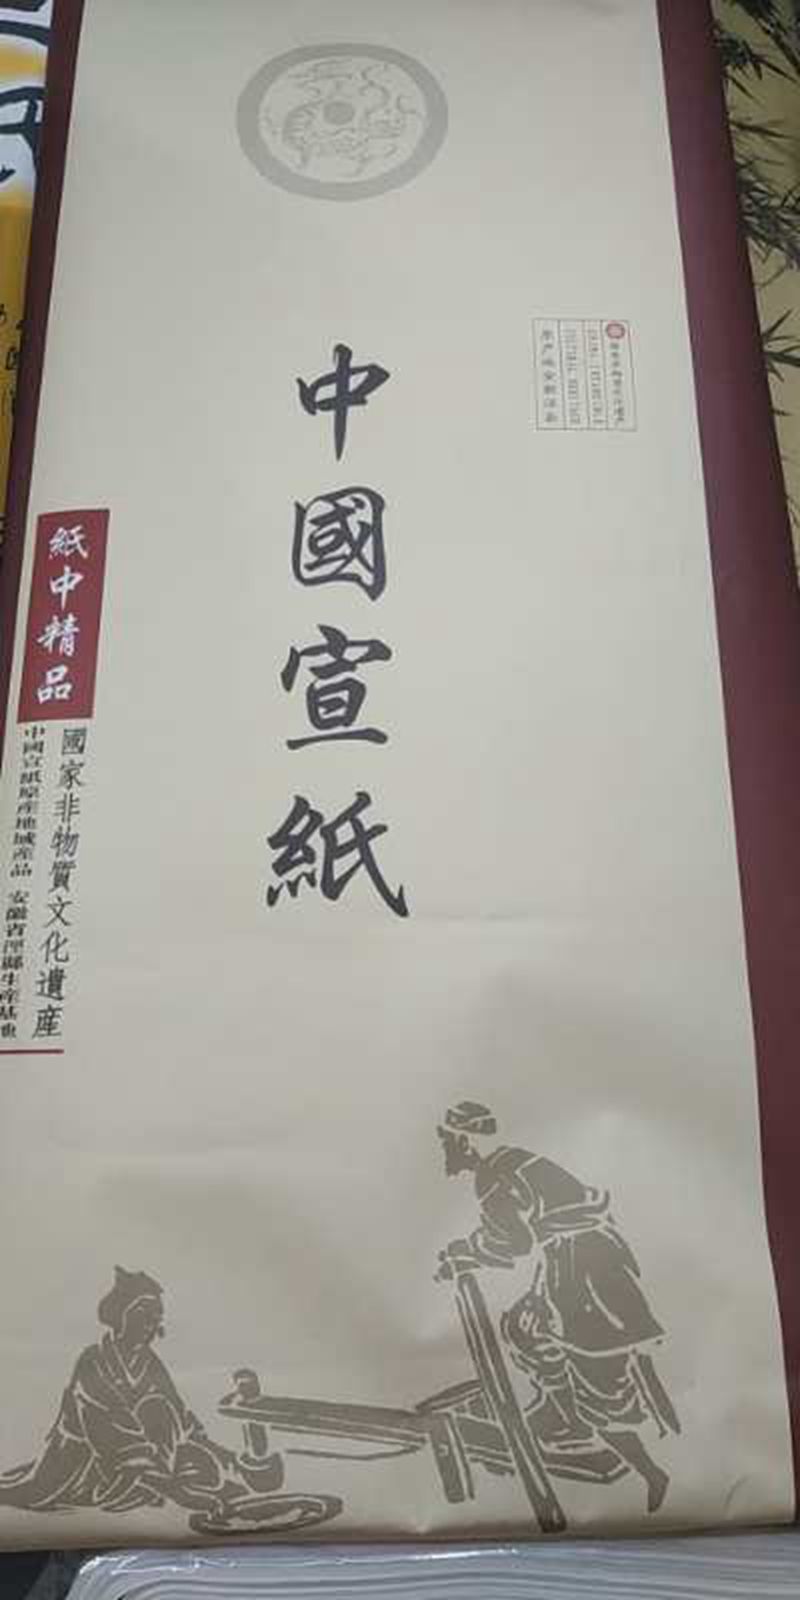 中國宣紙
紙中精品
國家非物質文化遺産
中國宣紙原産地域産品 安徽省涇縣生産基地